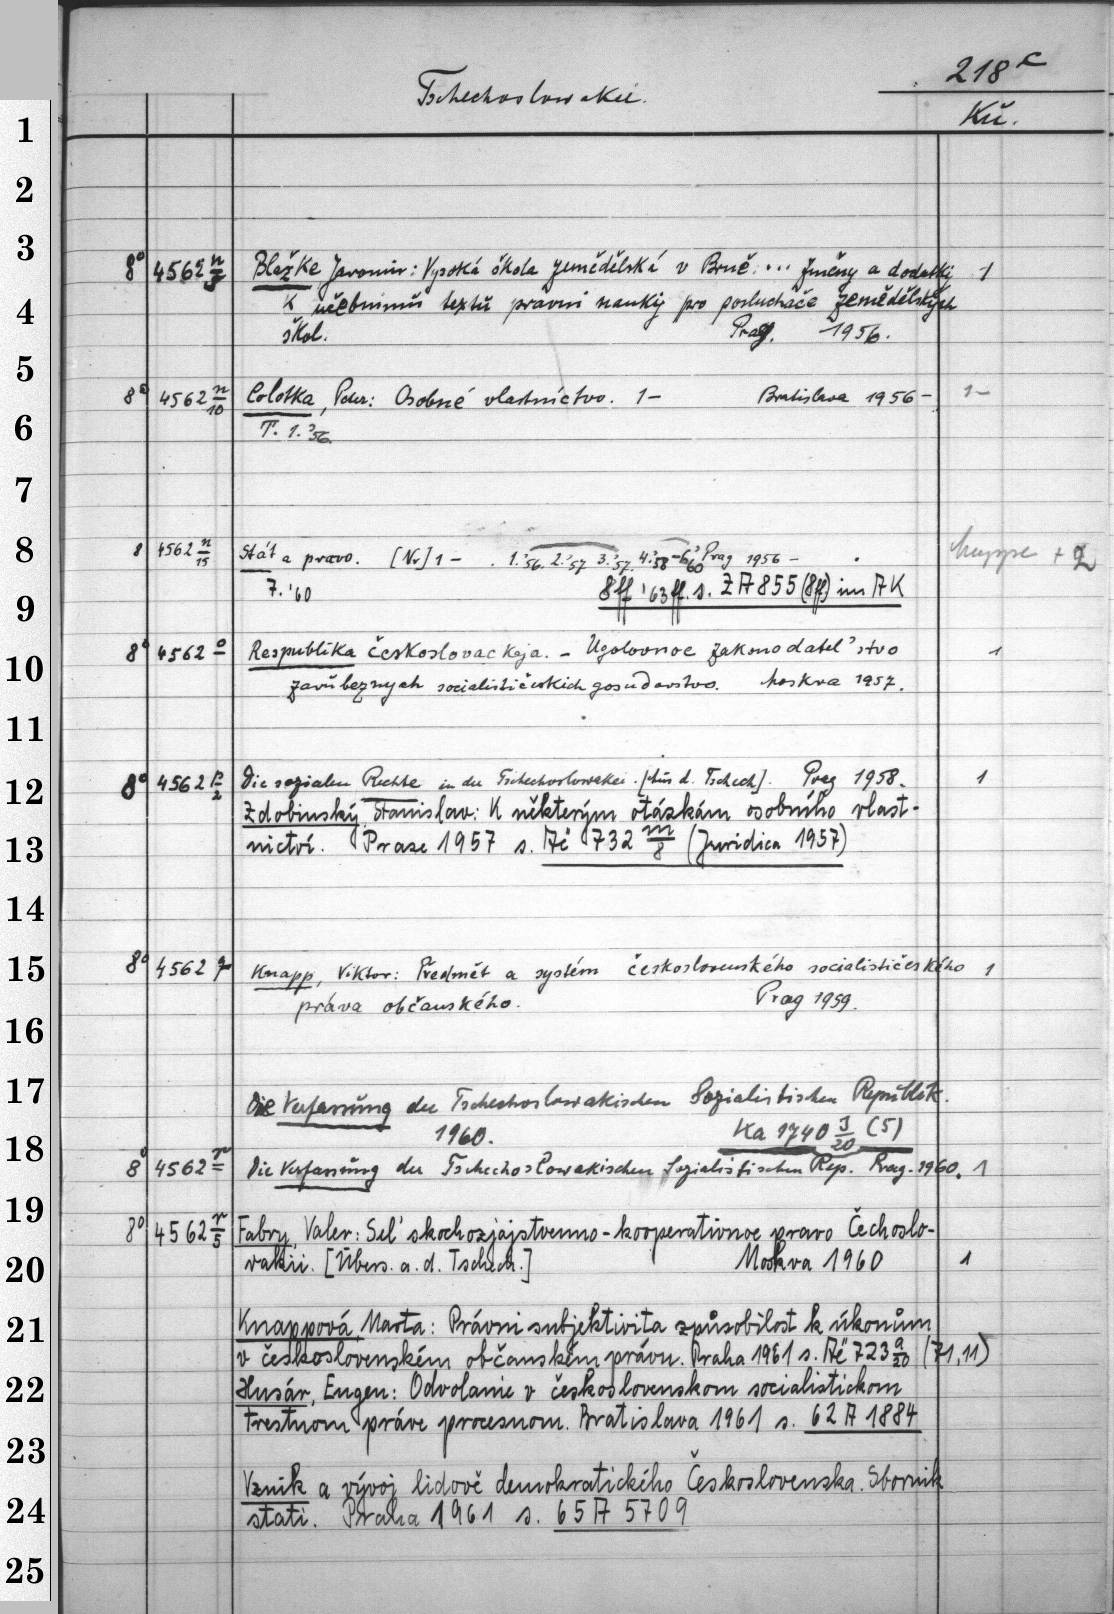 218c
Tschechoslowakei.
Kü.
1
2
3
8° 4562 n/5 Blažke Jaromir: Vysoká škola zemědělská v Brně: ... změny a dodatky 1
4 k učebnímu textu pravní nauky pro posluchače zemědělských
škol. Prag. 1956.
5
8° 4562 n/10 Colotka, Peter: Osobné vlastníctvo. 1- Bratislava 1956- 1-
6 T. 1.'56.
7
8 8 4562 n/15 Stát a pravo. [Nr] 1- . 1.'56. 2.'57 3.'57. 4.'58-6.'60 Prag 1956- Mappe + 2
7.'60 8ff '63ff. s. ZA 855 (8ff) im AK
9
8° 4562 o Respublika československaja. - Ugolovnoe zakonodatel'stvo 1
10 zarubeznych socialističeskich gosudarstvo. Moskva 1957.
11
12 8° 4562 p/2 Die sozialen Rechte in der Tschechoslowakei. [Aus d. Tschech]. Prag 1958. 1
Zdobinský, Stanislav: K některým otázkám osobního vlast-
13 nictví. Praze 1957 s. Ač 732 m/8 (Juridica 1957)
14
15 8° 4562 q Knapp, Viktor: Předmět a systém československého socialističeského 1
práva občanského. Prag 1959.
16
17 Die Verfassung der Tschechoslowakischen Sozialistischen Republik.
1960. Ka 1740 J/20 (5)
18 8° 4562 r Die Verfassung der Tschechoslowakischen Sozialistischen Rep. Prag. 1960. 1
19 8° 4562 r/5 Fabry, Valer: Sel'skochozjajstvenno-kooperativnoe pravo Čechoslo-
20 vakii. [Übers. a. d. Tschech.] Moskva 1960 1
21 Knappová, Marta: Právni subjektivita způsobilost k úkonům
v československém občanském právu. Praha 1961 s. Ač 723 a/20 (71,11)
22 Husár, Eugen: Odvolanie v československom socialistickom
trestnom práve procesnom. Bratislava 1961 s. 62 A 1884
23
Vznik a vývoj lidově demokratického Československa. Sborník
24 stati. Praha 1961 s. 65 A 5709
25